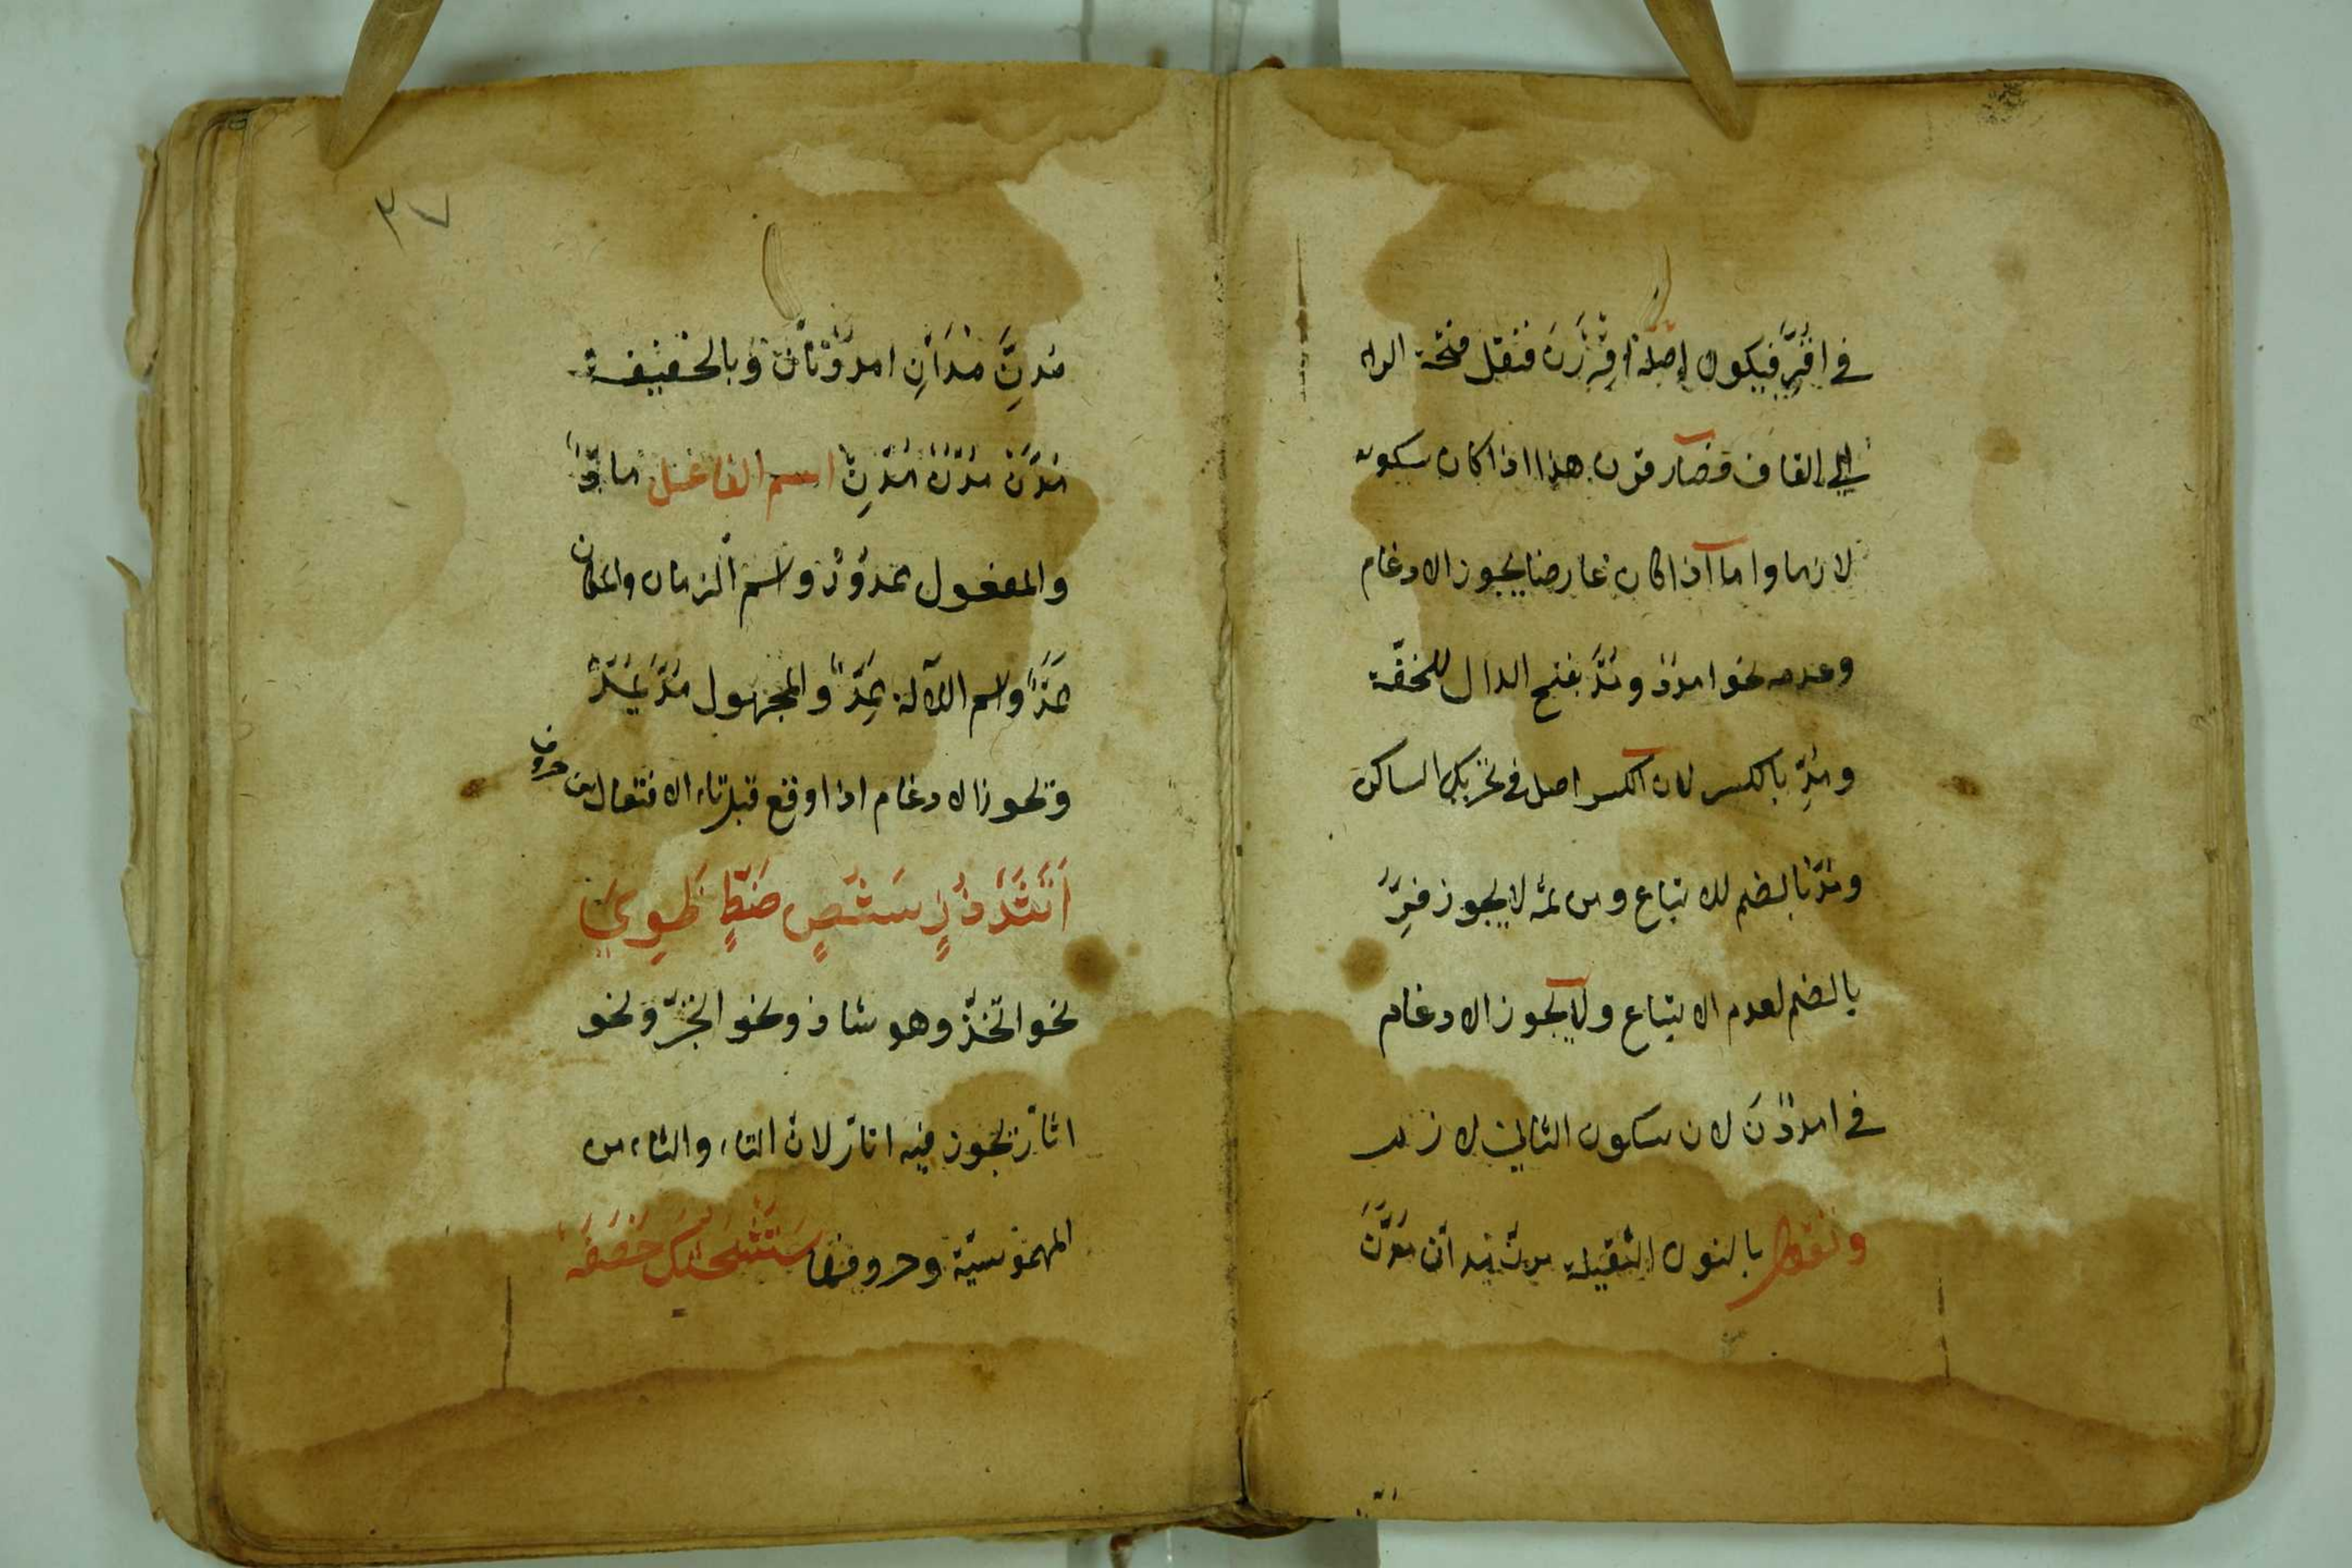 في اقرر فيكون اصله اقررن فنقل فتحة الراء
الي القاف فصار قرن هذا اذا كان سكونه
لازما واما اذا كان عارضا يجوز الادغام
وعدمه نحو امدد ومد بفتح الدال للخفة
ومد بالكسر لان الكسر اصل في تحريك الساكن
ومد بالضم للاتباع ومن ثمه لا يجوز فر
بالضم لعدم الاتباع ولا يجوز الادغام
في امددن لان سكون الثاني لازم
وتقول بالنون الثقيلة مدن مدان مدن
٣٧
مدن مدان امددنان وبالخفيفة
مدن مدن مدن اسم الفاعل ماد
والمفعول ممدود واسم الزمان والمكان
ممد واسم الآلة ممد والمجهول مد يمد
وتجوز الادغام اذا وقع قبل تاء الافتعال من حروف
اتثدذز سشص ضطظوي
نحو اتخذ وهو شاذ ونحو اتجر ونحو
اثار تجوز فيه اتار لان التاء والثاء من
المهموسية وحروفها ستشحثك خصفه